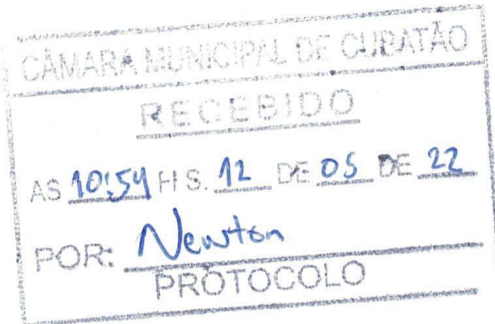 CÂMARA MUNICIPAL DE CUBATÃO
RECEBIDO
AS 10:54 HS. 12 DE 05 DE 22
POR: Newton
PROTOCOLO